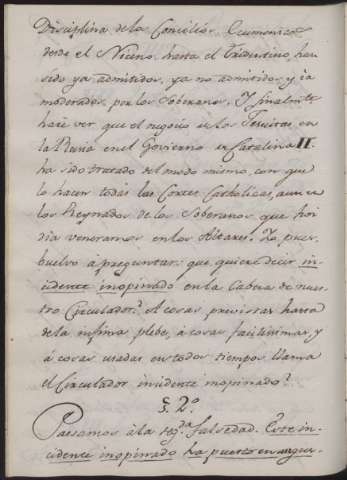 Disciplina de los Concilios Ecumenicos
desde el Niceno, hasta el Tridentino, han
sido ya admitidos, ya no admitidos, y ya
moderados por los Soberanos. Y finalmte
haré ver que el negocio de los Jesuitas en
la Rusia en el Govierno de Catalina II.
ha sido tratado del modo mismo con que
lo hacen todas las Cortes Catholicas, aun en
los Reynados de los Soberanos, que hoi
dia veneramos en los Altares. Yo pues
buelvo a preguntar: que quiere decir in-
cidente inopinado en la Cabeza de nues-
tro Circulador? A cosas previstas hasta
de la infima plebe, á cosas facilisimas, y
á cosas usadas en todos tiempos llama
el Circulador incidente inopinado?
§. 2.º
Pasemos á la sg.da falsedad. Este in-
cidente inopinado ha puesto en angus-